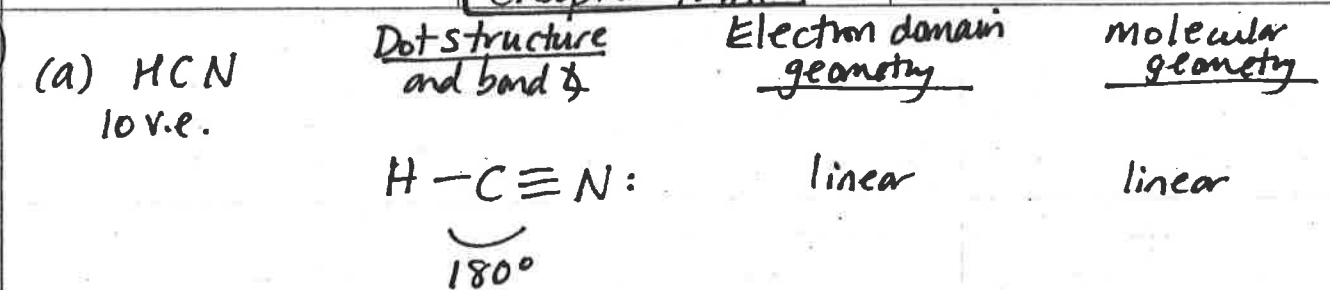 (a) HCN
10 v.e.
Dot structure
and bond ∡
Electron domain
geometry
molecular
geometry
H – C ≡ N :
linear
linear
180°